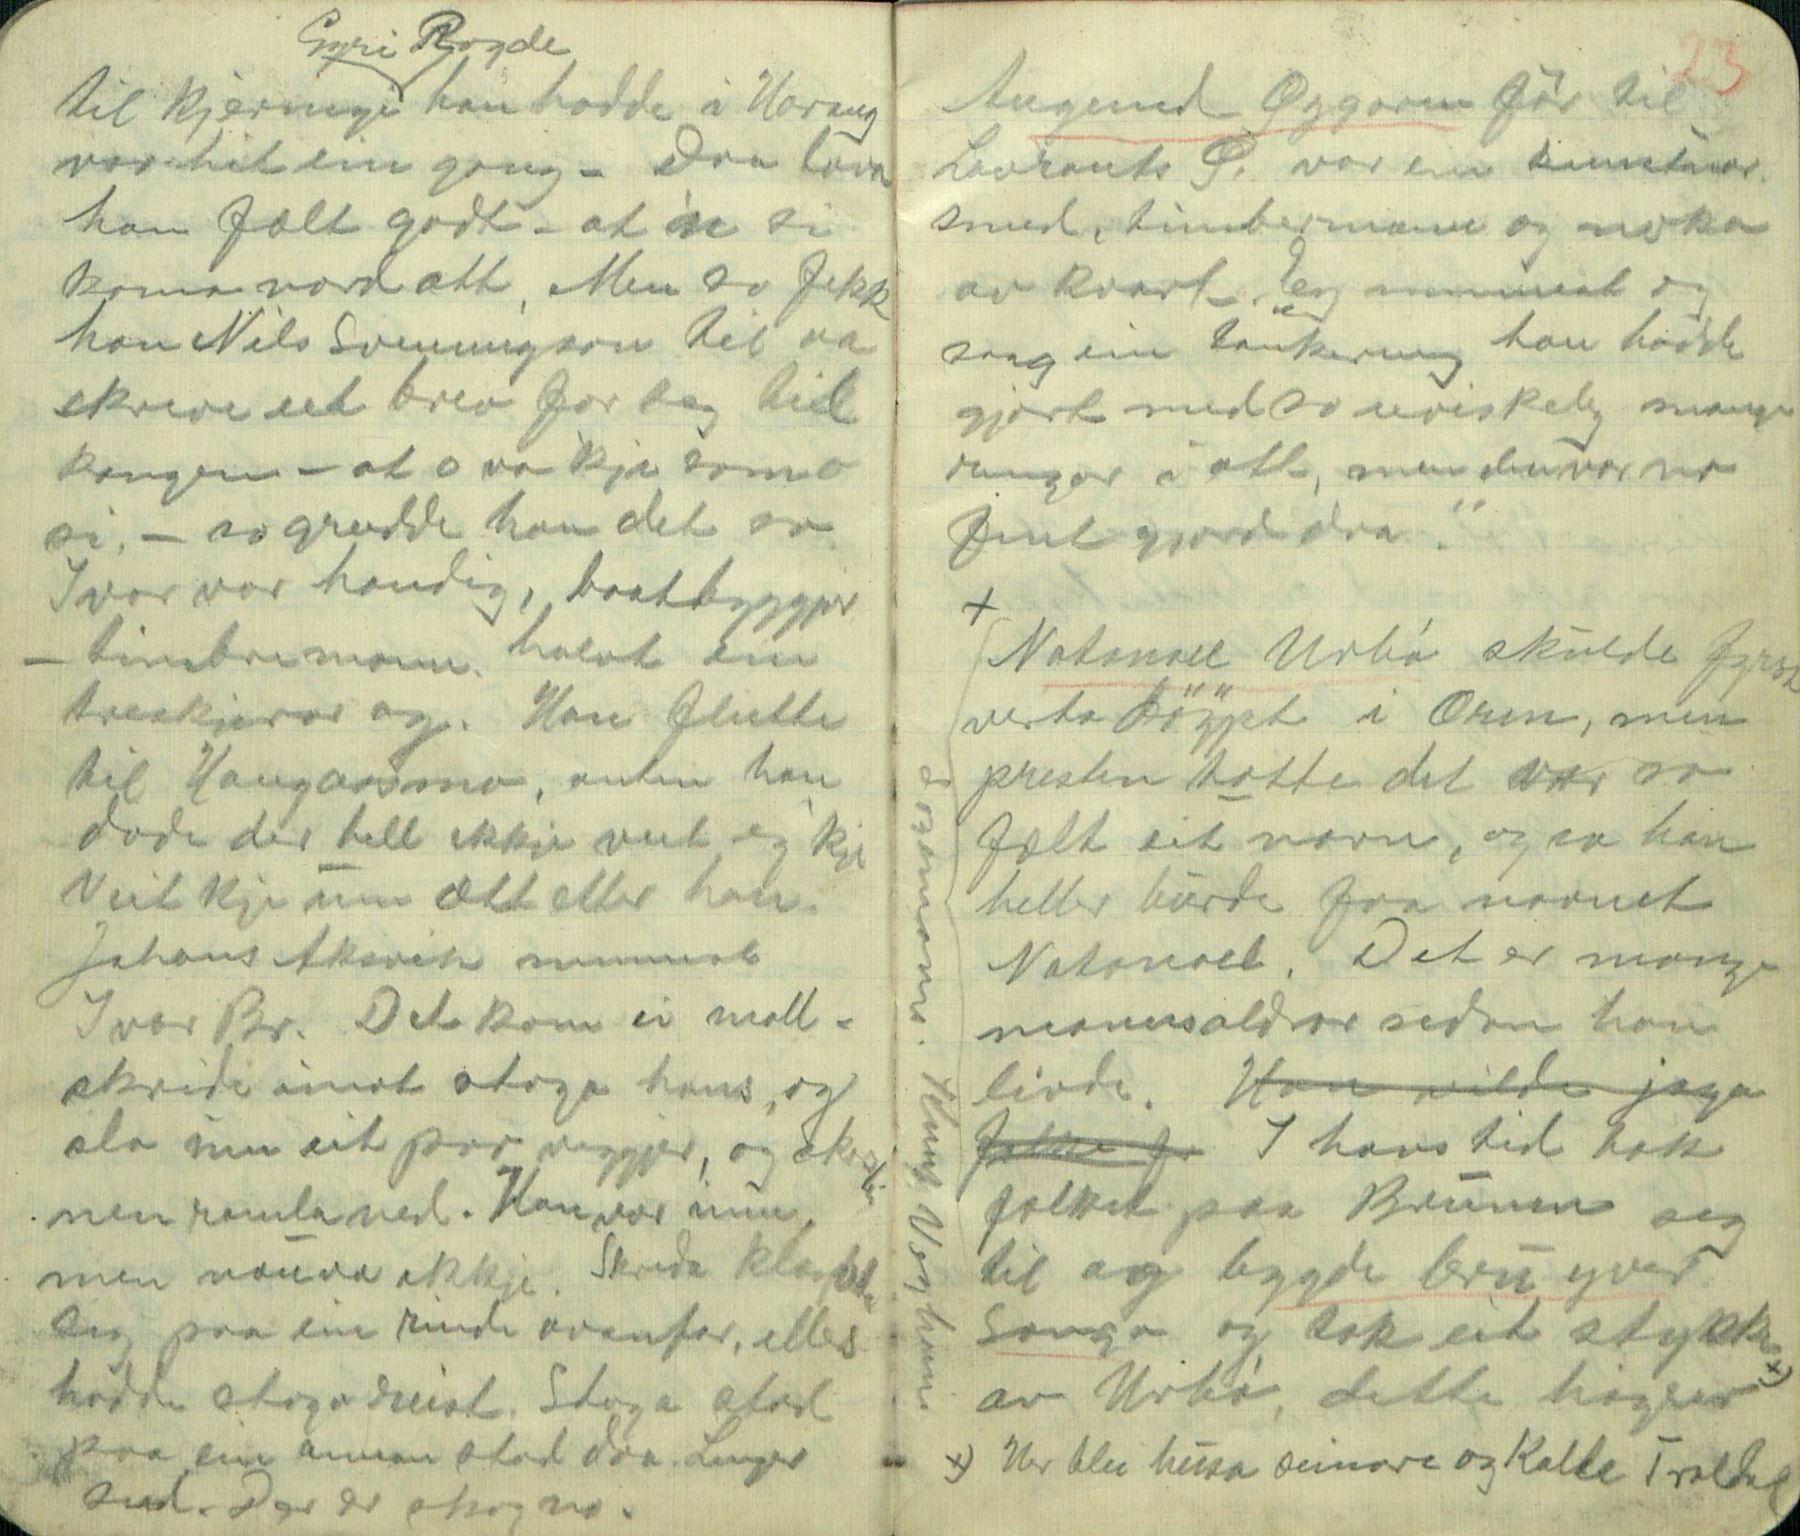 Gyri Rogde
til kjeringi han hadde i Haraug
var hit ein gong - Daa lova
han fælt godt - at 'n si
koma nord att, Men so fekk
han Nils Svenningson til aa
skrive eit brev for seg til
kongen - at o va kje som o
si, - so greidde han det so
Ivar var handig, baatbyggjar
- timbremann. halvt ein
treskjerar og. Han flutte
til Haugaasmo, anten han
døde der hell ikkje veit eg kje
Veit kje um ætt etter han.
Johans Aksvik
Ivar Br. Det kom ei moll-
skride imot stoga hans, og
sla inn eit par veggjer, og skors
nen ramla ned. Han var inne,
men ikkje. Skrida
seg paa ein rinde ovanfor, elles
hadde stoga reist. Stoga stod
paa ein annan stad daa. Lenger
sud. Der er skog no.
23
Augund Øygaren får til
Lavrants Ø. var ein kunstnar.
smed, timbermann og noko
av kvart. Eg og
saag ein han hadde
gjort med so uviskeleg mange
ringar i att, men den var no
fint gjord daa."
+
Natanael Urbø skulde fyrst
verta døypt i Øren, men
presten totte det var so
fælt eit navn, og sa han
heller burde faa navnet
Natanael. Det er mange
mannsaldrar sidan han
livde. Han vilde jaga
folke fr I hans tid tok
folket paa Brunen seg
til og bygde bru yver
Songa og tok eit stykke x)
av Urbø, dette høgrer
x) Her blei husa seinare og kalla Troldal
er osanmans. Knut Veghuus